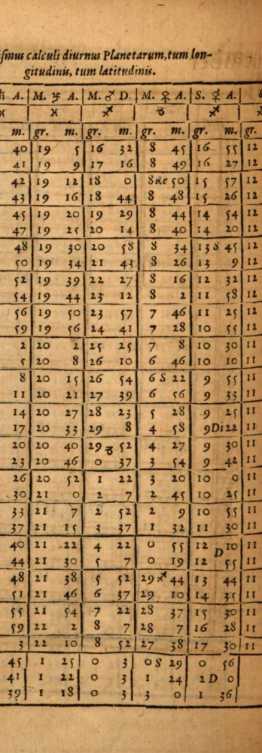 simus calculi diurnus Planetarum, tum lon-
gitudinis, tum latitudinis.
A. | M. ♃ A. | M. ♂ D. | M. ♀ A. | S. ☿ A.
♓ | ♐ | ♑ | ♐
m. | gr. m. | gr. m. | gr. m. | gr. m. | gr.
40 | 19 5 | 16 32 | 8 45 | 16 55 | 12
41 | 19 9 | 17 16 | 8 49 | 16 27 | 12
42 | 19 12 | 18 0 | 8 Re 50 | 15 57 | 12
43 | 19 16 | 18 44 | 8 48 | 15 26 | 12
45 | 19 20 | 19 29 | 8 44 | 14 54 | 12
47 | 19 25 | 20 14 | 8 40 | 14 20 | 12
48 | 19 30 | 20 58 | 8 34 | 13 S 45 | 12
50 | 19 34 | 21 43 | 8 26 | 13 9 | 12
52 | 19 39 | 22 27 | 8 16 | 12 32 | 12
54 | 19 44 | 23 12 | 8 2 | 11 58 | 12
56 | 19 50 | 23 57 | 7 46 | 11 25 | 12
59 | 19 56 | 24 41 | 7 28 | 10 55 | 12
2 | 20 2 | 25 25 | 7 8 | 10 30 | 11
5 | 20 8 | 26 10 | 6 46 | 10 10 | 11
8 | 20 15 | 26 54 | 6 S 22 | 9 55 | 11
11 | 20 21 | 27 39 | 6 56 | 9 33 | 11
14 | 20 27 | 28 23 | 5 28 | 9 25 | 11
17 | 20 33 | 29 8 | 4 58 | 9 Di 22 | 11
20 | 20 40 | 29 ♑ 52 | 4 27 | 9 30 | 11
23 | 20 46 | 0 37 | 3 54 | 9 42 | 11
26 | 20 52 | 1 22 | 3 20 | 10 0 | 11
30 | 21 0 | 2 7 | 2 45 | 10 25 | 11
33 | 21 7 | 2 52 | 2 9 | 10 55 | 11
37 | 21 15 | 3 37 | 1 32 | 11 30 | 11
40 | 21 22 | 4 22 | 0 55 | 12 D 10 | 11
44 | 21 30 | 5 7 | 0 19 | 12 55 | 11
48 | 21 38 | 5 52 | 29 ♐ 44 | 13 44 | 11
51 | 21 46 | 6 37 | 29 10 | 14 35 | 11
55 | 21 54 | 7 22 | 28 37 | 15 30 | 11
59 | 22 2 | 8 7 | 28 7 | 16 28 | 11
3 | 22 10 | 8 52 | 27 38 | 17 30 | 11
45 | 1 25 | 0 3 | 0 S 29 | 0 56
41 | 1 22 | 0 3 | 1 24 | 2 D 0
39 | 1 18 | 0 3 | 3 0 | 1 36